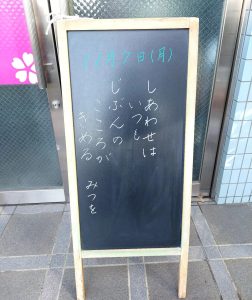 11月7日(月)
しあわせは
いつも
じぶんの
こころが
きめる
みつを